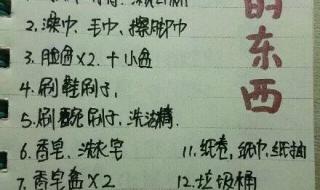 的东西
2.澡巾、毛巾、擦脚巾
3.脸盆×2.十小盆
4.刷鞋刷子,
5.刷碗刷子、洗洁精.
6.香皂、洗衣皂
11.纸卷,纸巾,纸抽
7.香皂盒×2
12.垃圾桶